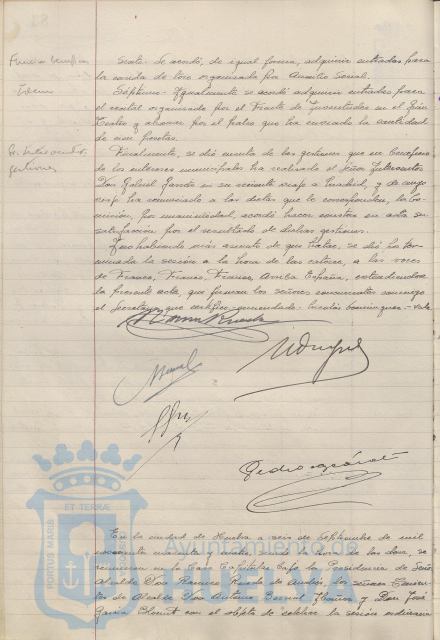 Sexto. Se acordó, de igual forma, adquirir entradas para
la corrida de toros organizada por Auxilio Social.
Séptimo. Igualmente se acordó adquirir entradas para
el recital organizado por el Frente de Juventudes en el Gran
Teatro y abonar por el palco que ha enviado la cantidad
de cien pesetas.
Finalmente, se dió cuenta de las gestiones que en beneficio
de los intereses municipales ha realizado el Señor Interventor
Don Rafael Garcia en su reciente viaje a Madrid, y de cuyo
viaje ha renunciado a las dietas que le correspondían, la Co-
misión, por unanimidad, acordó hacer constar en acta su
satisfacción por el resultado de dichas gestiones.
Y no habiendo más asuntos de que tratar, se dió por ter-
minada la sesión a la hora de las catorce, a las voces
de Franco, Franco, Franco, Arriba España, extendiendose
la presente acta, que firman los señores concurrentes conmigo
el Secretario que certifico.
Pedro
ET TERRÆ
PORTUS MARIS
Ayuntamiento de
HUELVA
En la ciudad de Huelva a seis de Septiembre de mil
novecientos cuarenta y siendo la hora de las doce, se
reunieron en la Casa Capitular bajo la Presidencia de Señor
Alcalde Don los señores Tenien-
tes de Alcalde Don Antonio Bernal y Don José
Garcia con el objeto de celebrar la sesión ordinaria